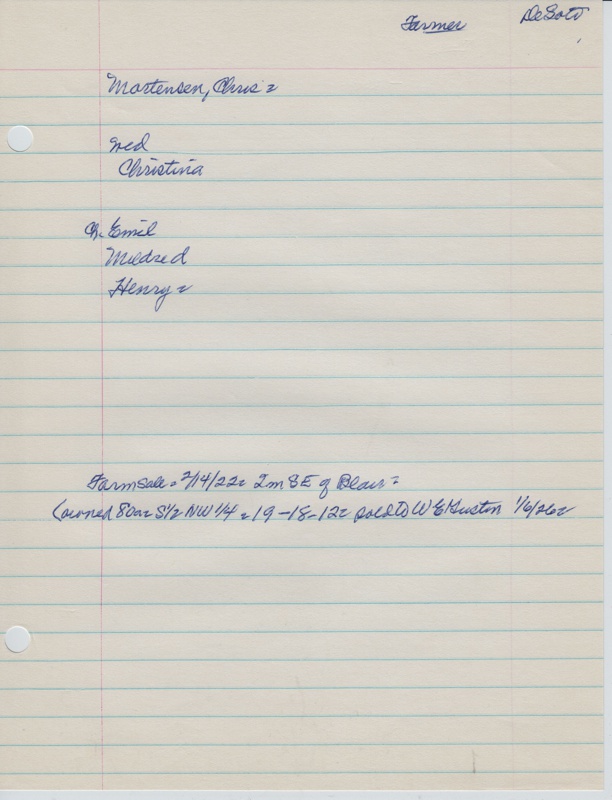 Farmer DeSoto
Mortensen, Chris =
Wed
Christina
Ch. Emil
Mildred
Henry =
Farmsale = 2/14/22 = 2m SE of Blair =
(owned 80a = S1/2 NW 1/4 = 19-18-12 = sold to W E 1/6/26 =